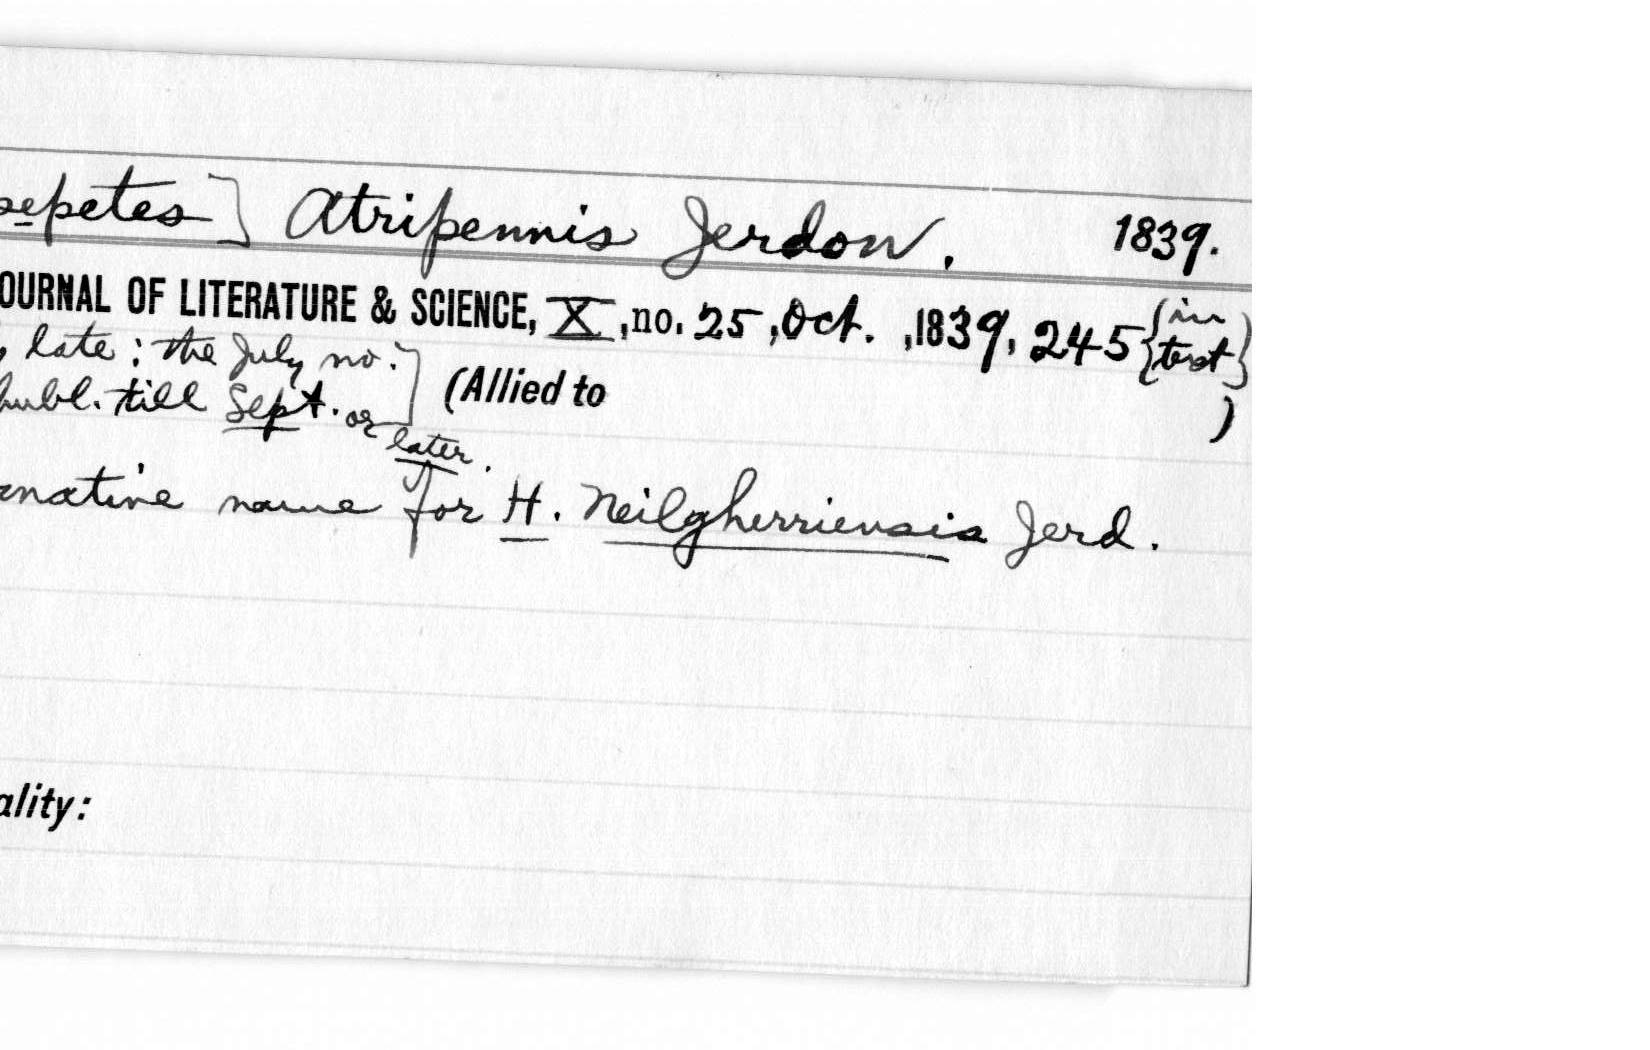 sepetes] Atripennis Jerdon. 1839.
OURNAL OF LITERATURE & SCIENCE, X, no. 25, Oct. ,1839, 245 {in text}
late: the July no.
publ. till Sept. or later.] (Allied to )
rnative name for H. Neilgherriensis Jerd.
ality: